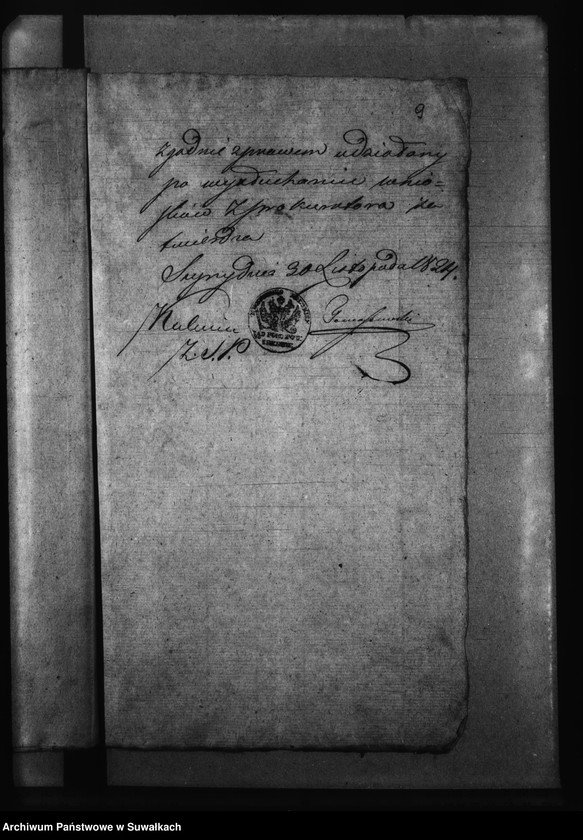 9
zgodnie z prawem udziałany
po wysłuchaniu wnio=
sków Z Prokuratora za
twierdza
Seyny dnia 20 Listopada 1824.
Z. S. P.
Archiwum Państwowe w Suwałkach